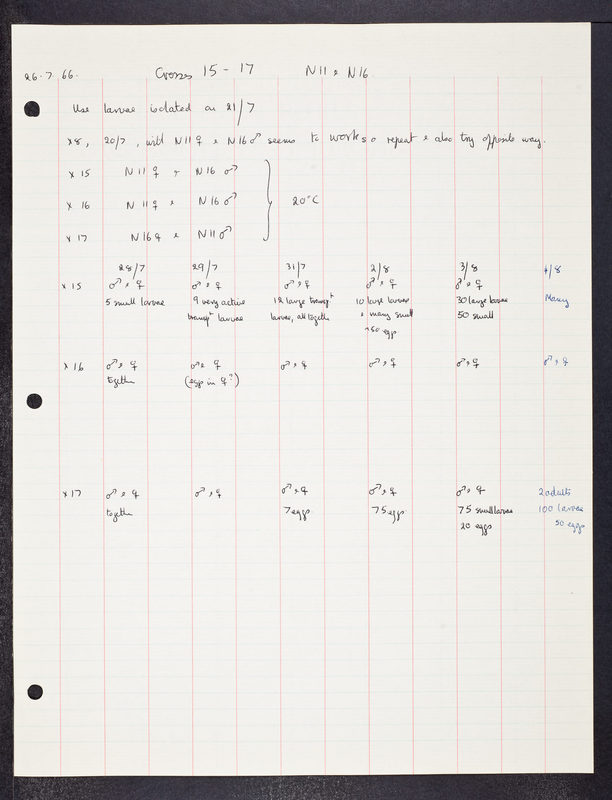 26.7.66. Crosses 15 - 17 N11 & N16.
Use larvae isolated on 21/7
x8, 20/7, with N11♀ & N16♂ seems to work so repeat & also try opposite way.
x 15 N11 ♀ & N16 ♂
x 16 N11 ♀ & N16 ♂ 20°C
x 17 N16 ♀ & N11 ♂
28/7 29/7 31/7 2/8 3/8 4/8
x 15 ♂ & ♀ ♂ & ♀ ♂ & ♀ ♂ & ♀ ♂ & ♀ Many
5 small larvae 9 very active 12 large transpt 10 large larvae 30 large larvae
transpt larvae larvae, all together & many small 50 small
~50 eggs
x 16 ♂ & ♀ ♂ & ♀ ♂ & ♀ ♂ & ♀ ♂ & ♀ ♂ & ♀
together (eggs in ♀?)
x 17 ♂ & ♀ ♂ & ♀ ♂ & ♀ ♂ & ♀ ♂ & ♀ 2 adults
together 7 eggs 75 eggs 75 small larvae 100 larvae
20 eggs 50 eggs